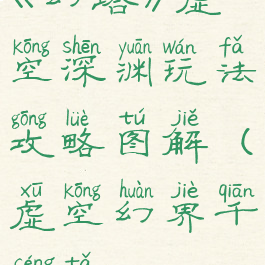 《幻塔》虚
kōng shēn yuān wán fǎ
空深渊玩法
gōng lüè tú jiě
攻略图解（
xū kōng huàn jiè qiān
虚空幻界千
céng tǎ